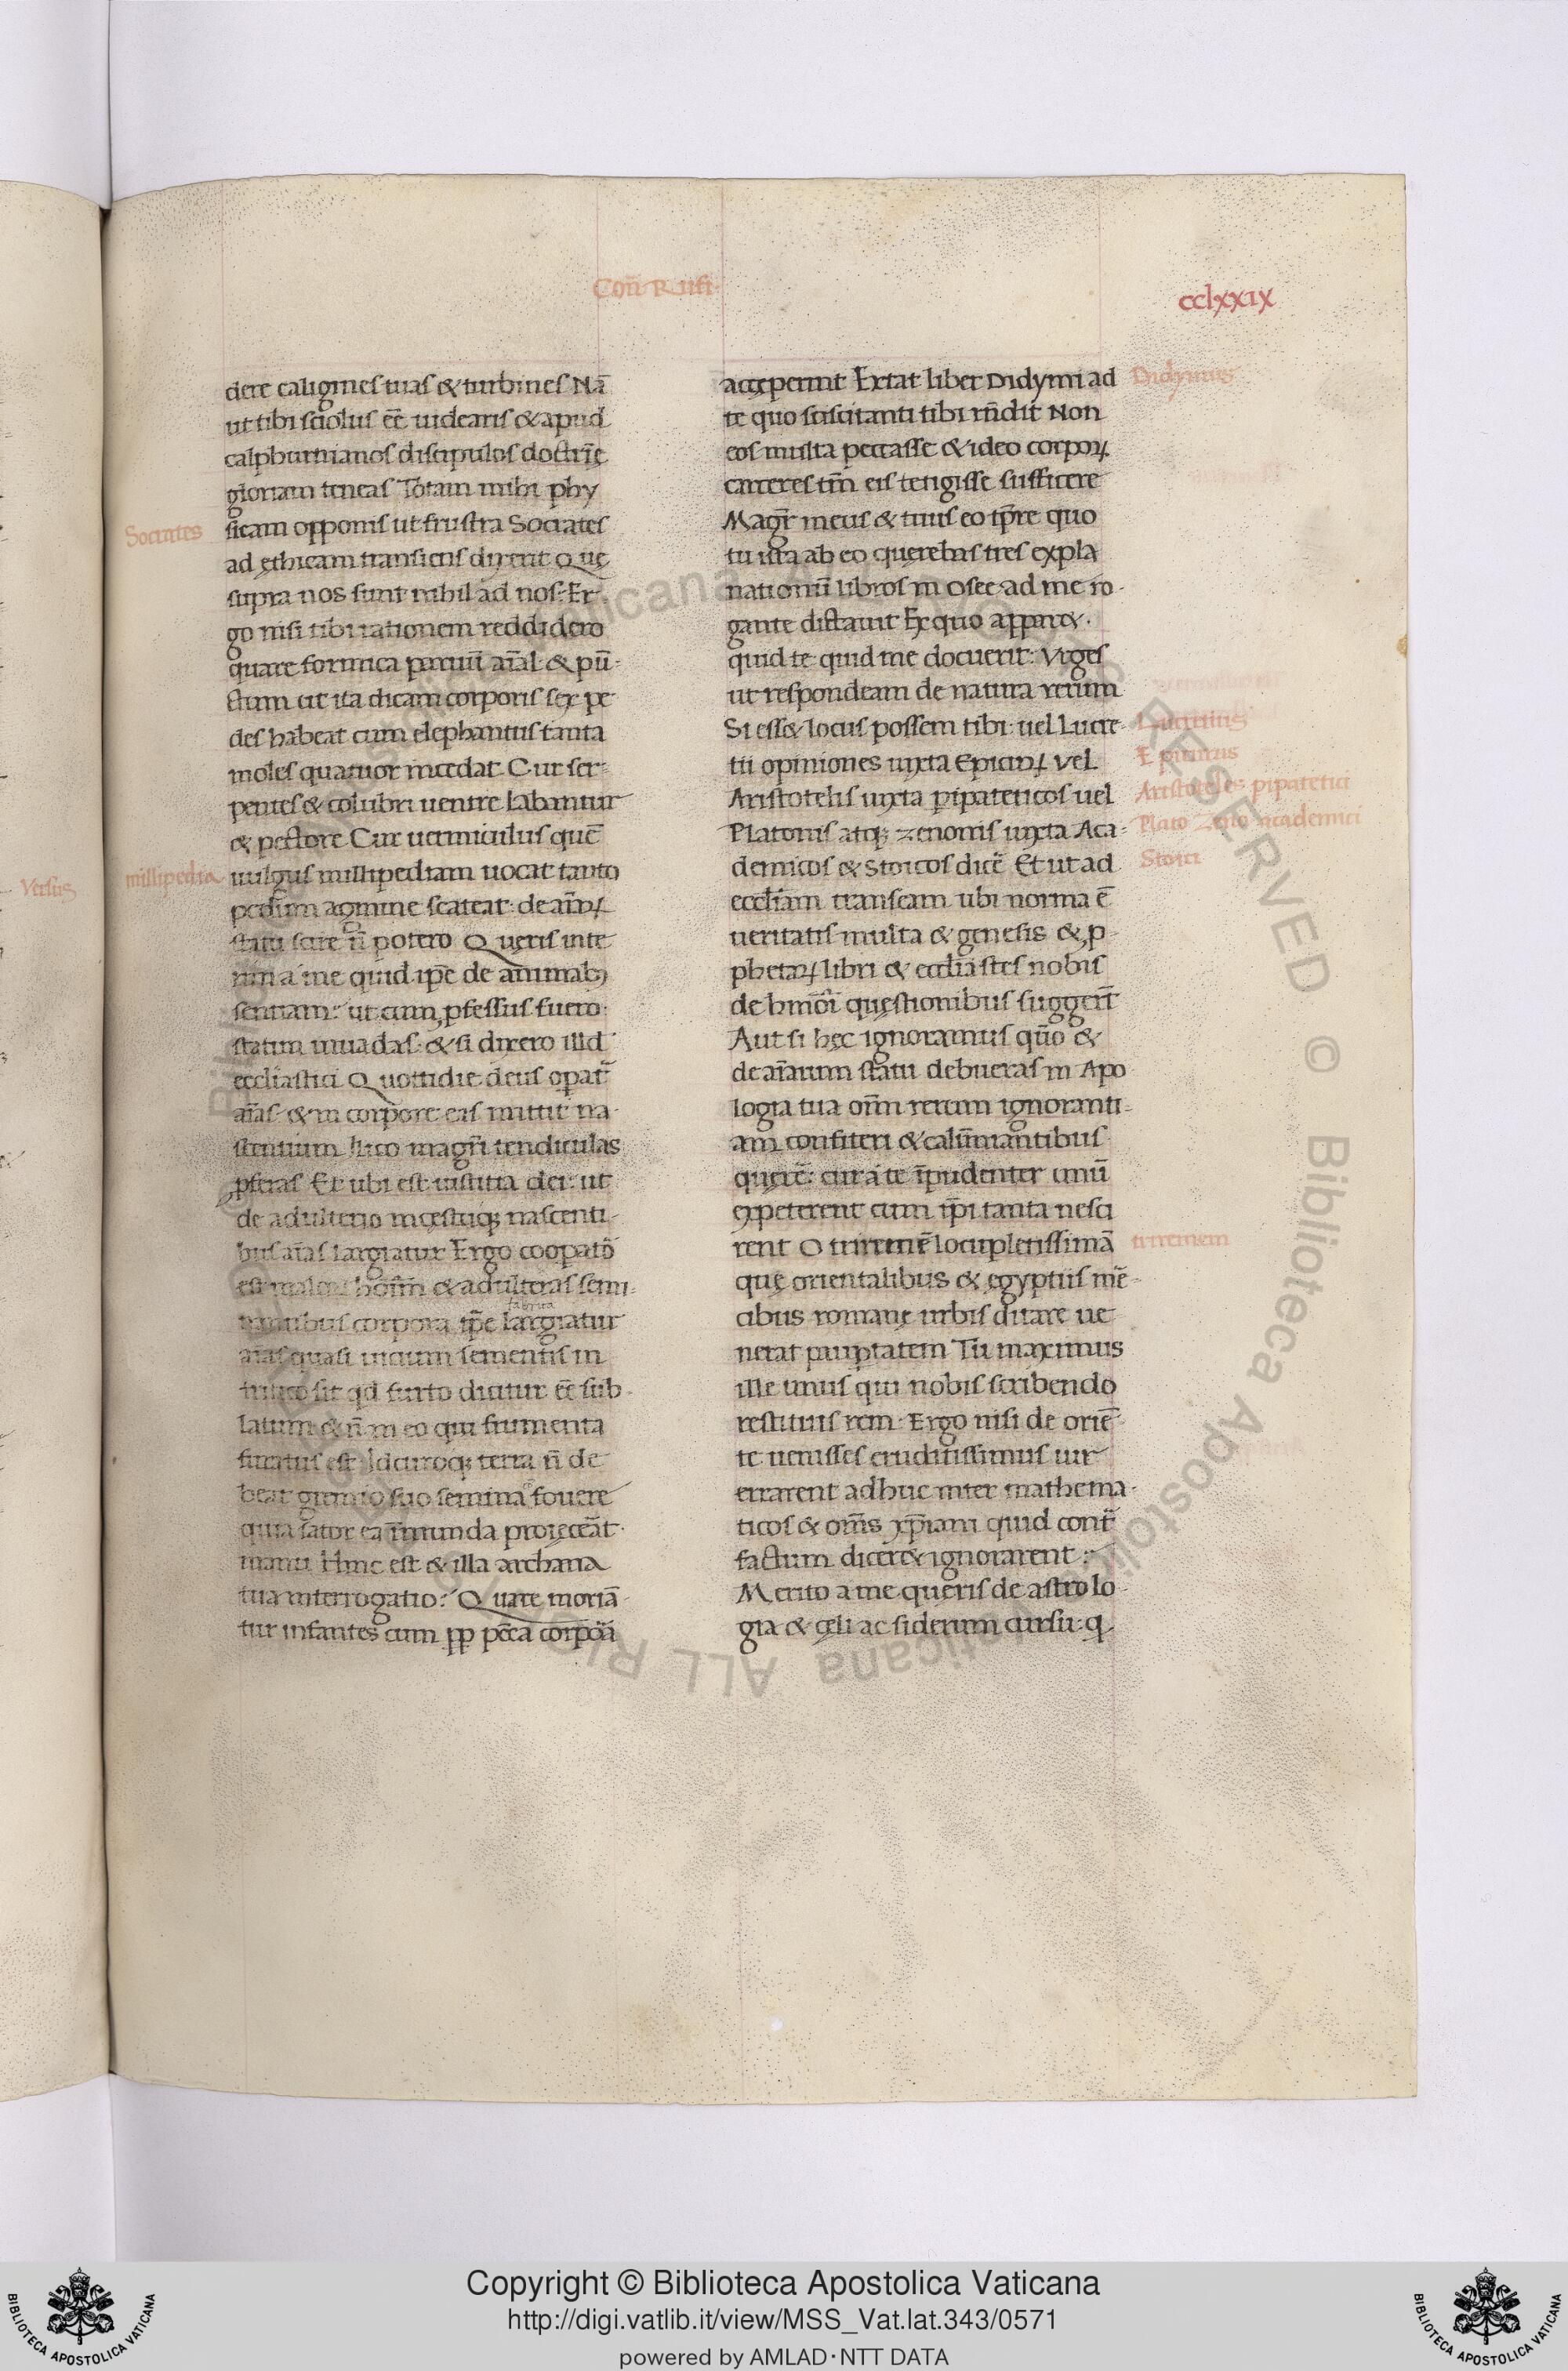 Coñ Rufi·
cclxxix
dere caligines tuas & turbines Nā
ut tibi sciolus eē uidearis & apud
calphurnianos discipulos doctrīę
gloriam teneas Totam mihi phy
sicam opponis ut frustra Socrates
ad ethicam transiens dixerit Que
supra nos sunt nihil ad nos· Er
go nisi tibi rationem reddidero
quare formica paruū aīal· & pū-
ctum ut ita dicam corporis sex pe
des habeat cum elephantus tanta
moles quatuor incedat· Cur ser-
pentes & colubri uentre labantur
& pectore Cur uermiculus quē
uulgus millipediam uocat tanto
pedum agmine scateat: de aīaꝝ
statu scire ñ potero Queris inte
rim a me quid ipē de animabꝫ
sentiam: ut cum ꝓfessus fuero·
statim inuadas· & si dixero illd
eccliastici Quottidie deus opat̄
aīas· & in corpore eas mittit na
scentium Ilico magr̄i tendiculas
ꝓferas Et ubi est iustitia dei: ut
de adulterio incestuqꝫ nascenti-
bus aīas largiatur Ergo coopatō
est malis hoīm & adulteras semi-
fabrica
nantibus corpora ipē largiatur
aīas quasi uicium sementis in
tritico sit qd furto dicitur eē sub
latum & ñ in eo qui frumenta
furatus est Idcircoqꝫ terra ñ de
beat gremio suo semina fouere
quia sator ea īmunda proiecēat·
manu Hinc est & illa archana
tua interrogatio: Quare moriā
tur infantes cum pp pcc̄a corpōa
acceperint Extat liber Didymi ad
te quo sciscitanti tibi rñdit Non
eos multa peccasse & ideo corpoꝝ
carceres tm̄ eis tetigisse sufficere
Magr̄ meus & tuus eo tp̄re quo
tu ista ab eo querebas tres expla
nationū libros in Osee ad me ro-
gante dictauit Ex quo apparet·
quid te quid me docuerit: Vrges
ut respondeam de natura rerum
Si esset locus possem tibi uel Lucre-
tii opiniones iuxta Epicuꝝ vel
Aristotelis iuxta pipateticos uel
Platonis atqꝫ zenonis iuxta Aca-
demicos & Stoicos dicē Et ut ad
eccliam transeam ubi norma ē
ueritatis multa & genesis & ꝓ
phetaꝝ libri & eccliastes nobis
de hmōi questionibus suggeriī
Aut si hęc ignoramus quō &
de aīarum statu debueras in Apo
logia tua om̄m rerum ignoranti-
am confiteri & calūmantibus
querē: cur a te īpudenter unū
expeterent cum ipi tanta nesci
rent O triremē locupletissimā
que orientalibus & egyptiis mē-
cibus romane urbis ditare ue
nerat pauptatem Tu maximus
ille unus qui nobis scribendo
restituis rem· Ergo nisi de oriē-
te uenisses eruditissimus uir
errarent adhuc inter mathema-
ticos & om̄s xp̄iani quid cont̄
factum dicer& ignorarent:
Merito a me queris de astrolo-
gia & celi ac siderum cursu: q
Socrates
millipedia
Versus
Didymus
Lucretius
Epicurus
Aristoteles pipatetici
Plato Zeno academici
Stoici
triremem
Copyright © Biblioteca Apostolica Vaticana
http://digi.vatlib.it/view/MSS_Vat.lat.343/0571
powered by AMLAD·NTT DATA
BIBLIOTECA APOSTOLICA VATICANA
BIBLIOTECA APOSTOLICA VATICANA